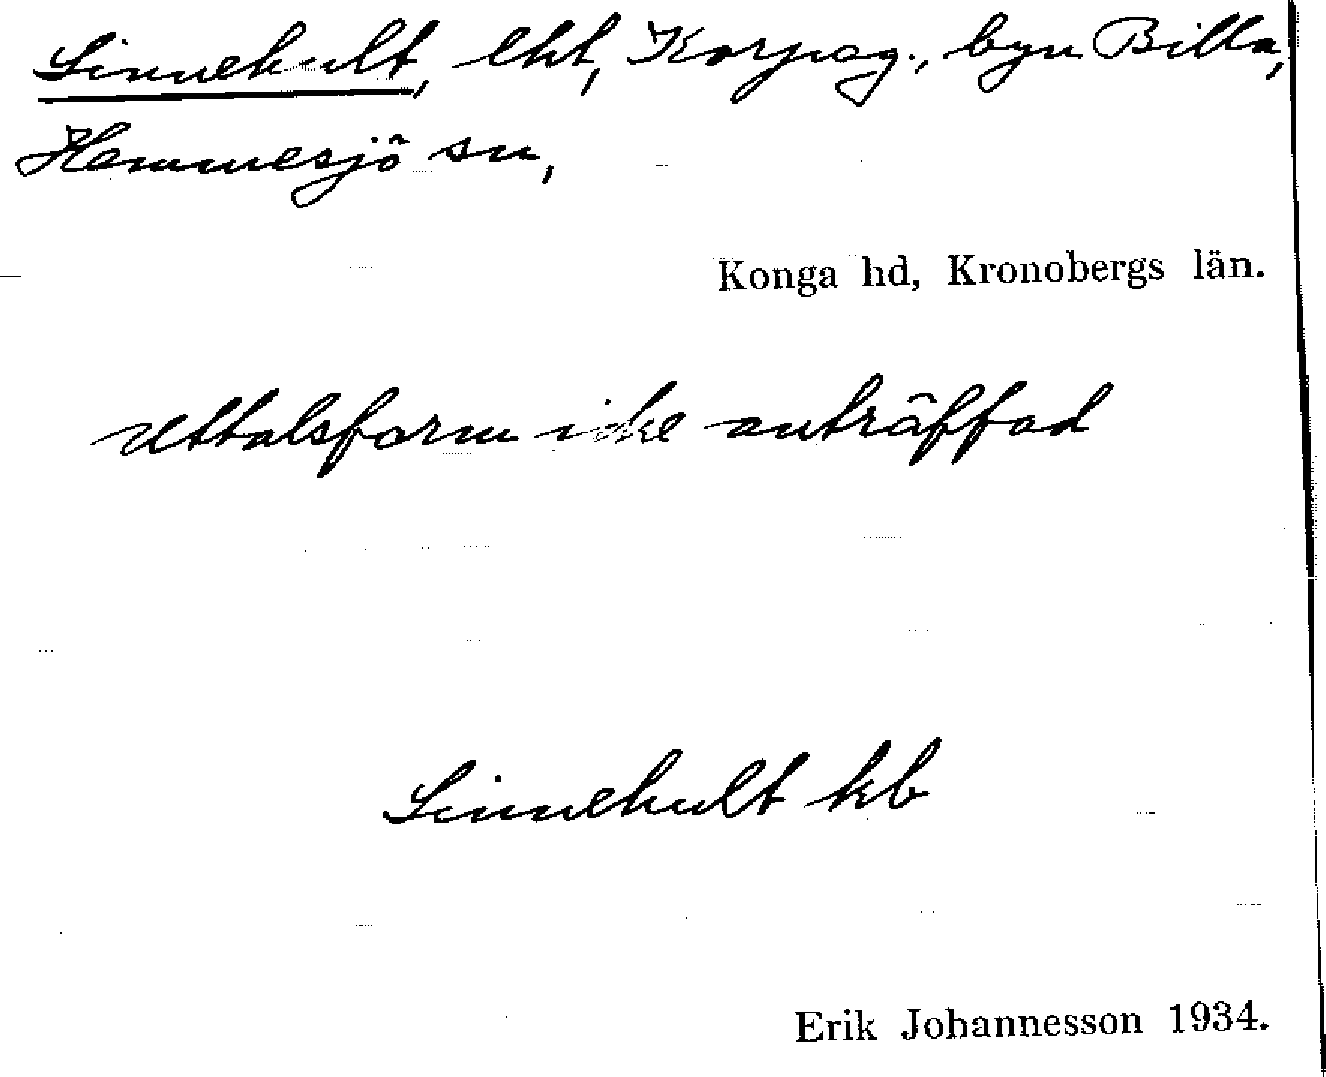 Linnehult, lht, Korpeg., byn Billa,
Hemmesjö sn,
Konga hd, Kronobergs län.
Uttalsform icke anträffad
Linnehult kb
Erik Johannesson 1934.